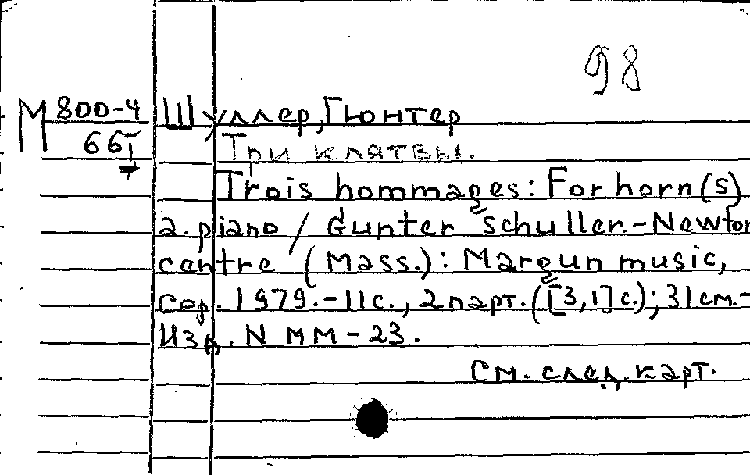 98
М 800-4
66 I
Шуллер, Гюнтер
Три клятвы.
Trois hommages: For horn(s)
a. piano / Gunter Schuller.-Newton
centre (Mass.): Margun music,
cop. 1979.-11с., 2 парт. ([3,1]с.); 31см.-
Изд. N MM-23.
См. след. карт.